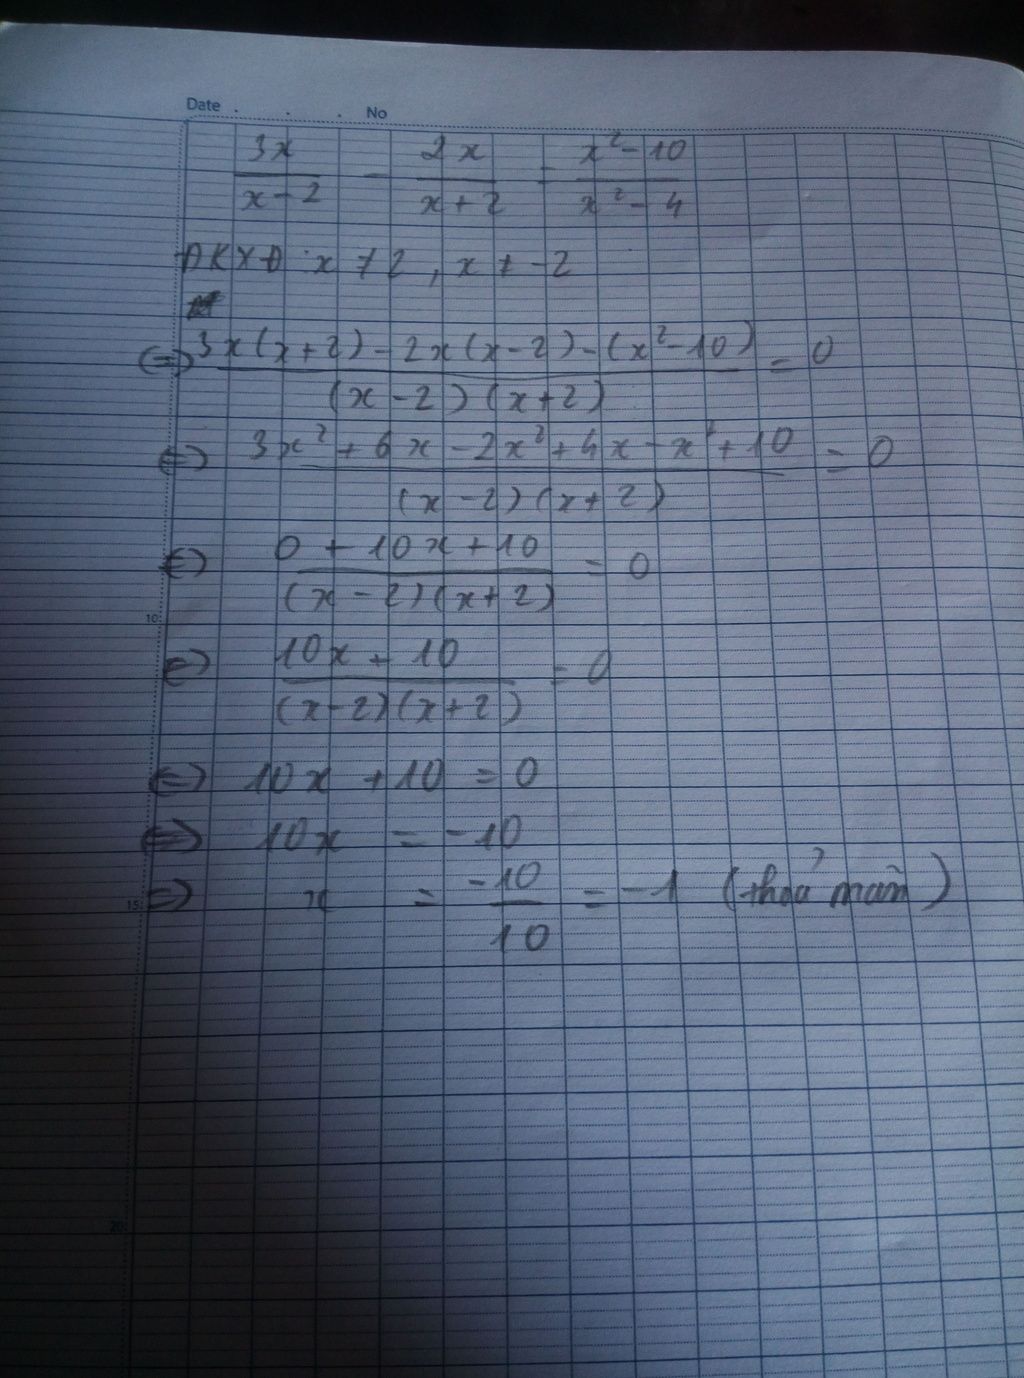 Date . . . No
3x/(x-2) - 2x/(x+2) = (x²-10)/(x²-4)
ĐKXĐ: x ≠ 2, x ≠ -2
(=) (3x(x+2) - 2x(x-2) - (x²-10))/((x-2)(x+2)) = 0
(=) (3x² + 6x - 2x² + 4x - x² + 10)/((x-2)(x+2)) = 0
(=) (0 + 10x + 10)/((x-2)(x+2)) = 0
10
(=) (10x + 10)/((x-2)(x+2)) = 0
(=) 10x + 10 = 0
(=) 10x = -10
15
(=) x = -10/10 = -1 (thoả mãn)
20